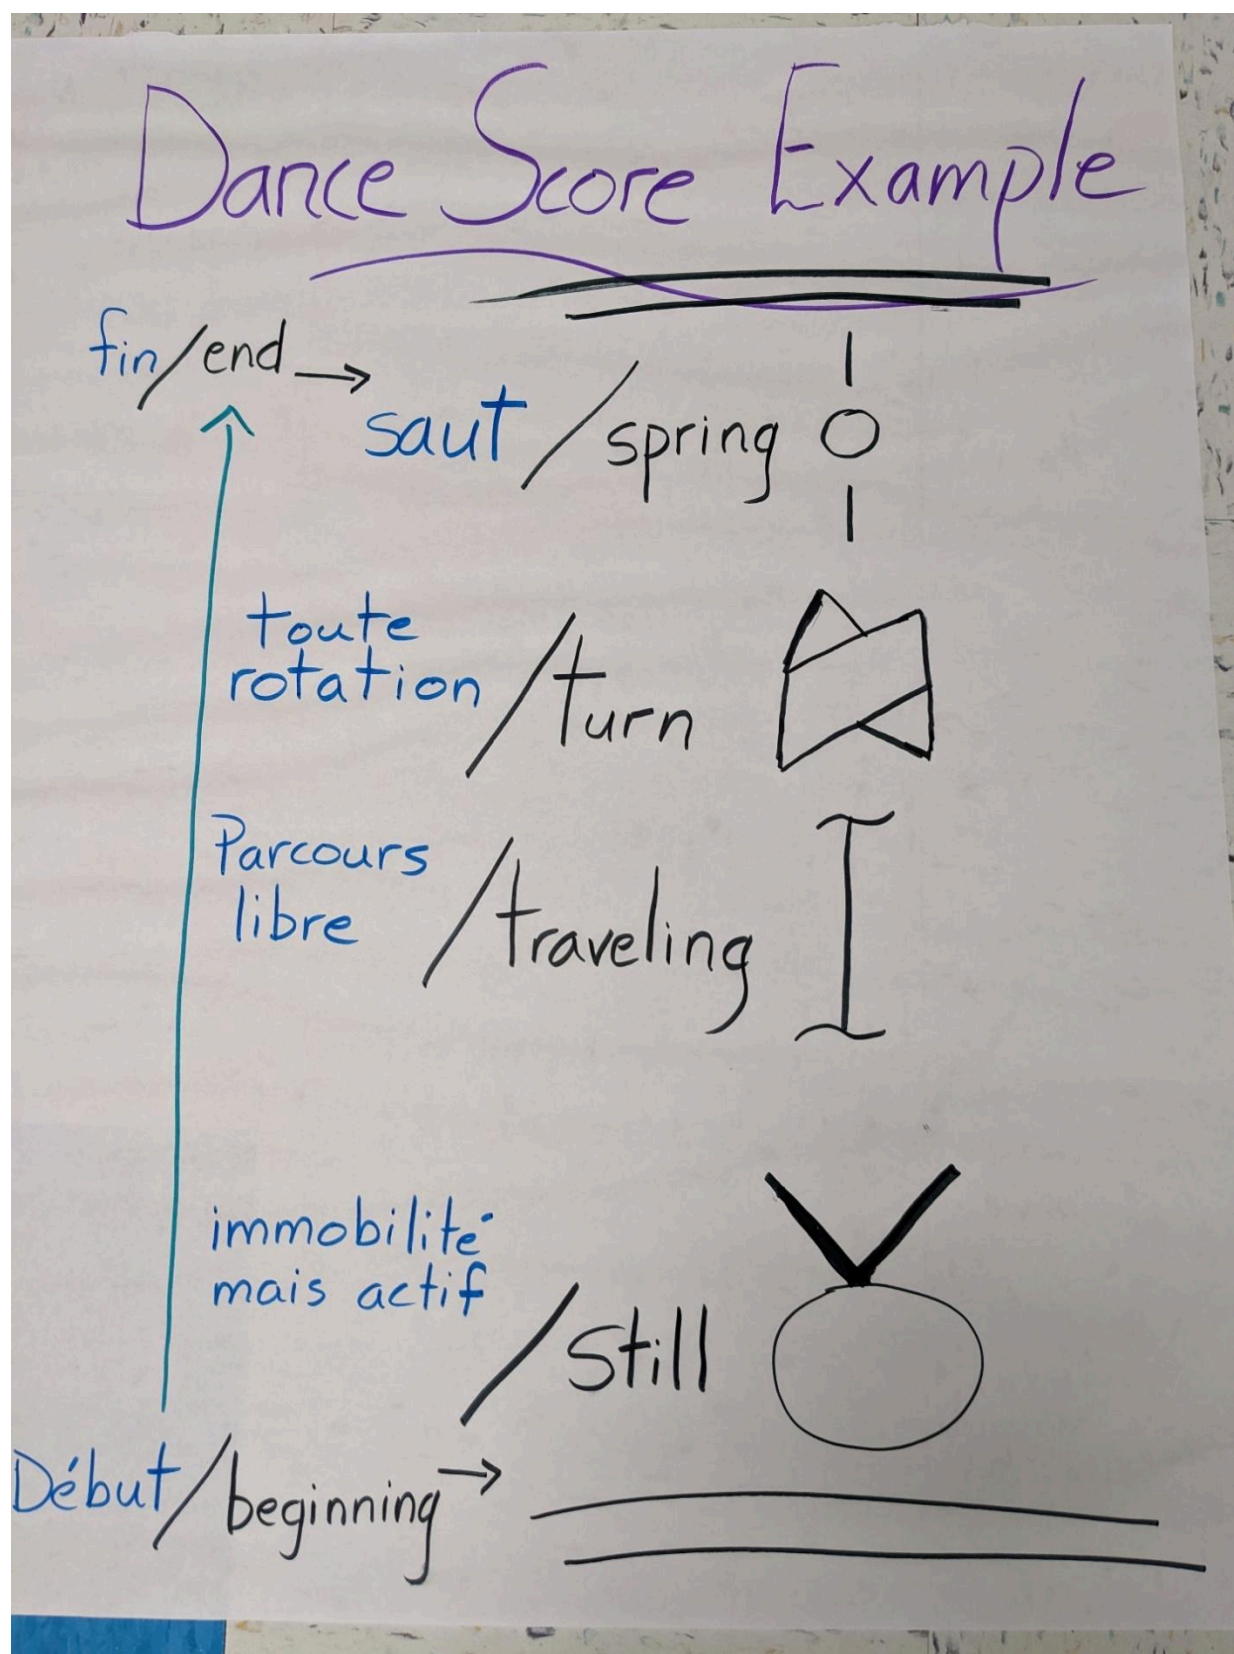 Dance Score Example
fin/end →
saut / spring
toute
rotation / turn
Parcours
libre / traveling
immobilité
mais actif / Still
Début/beginning →